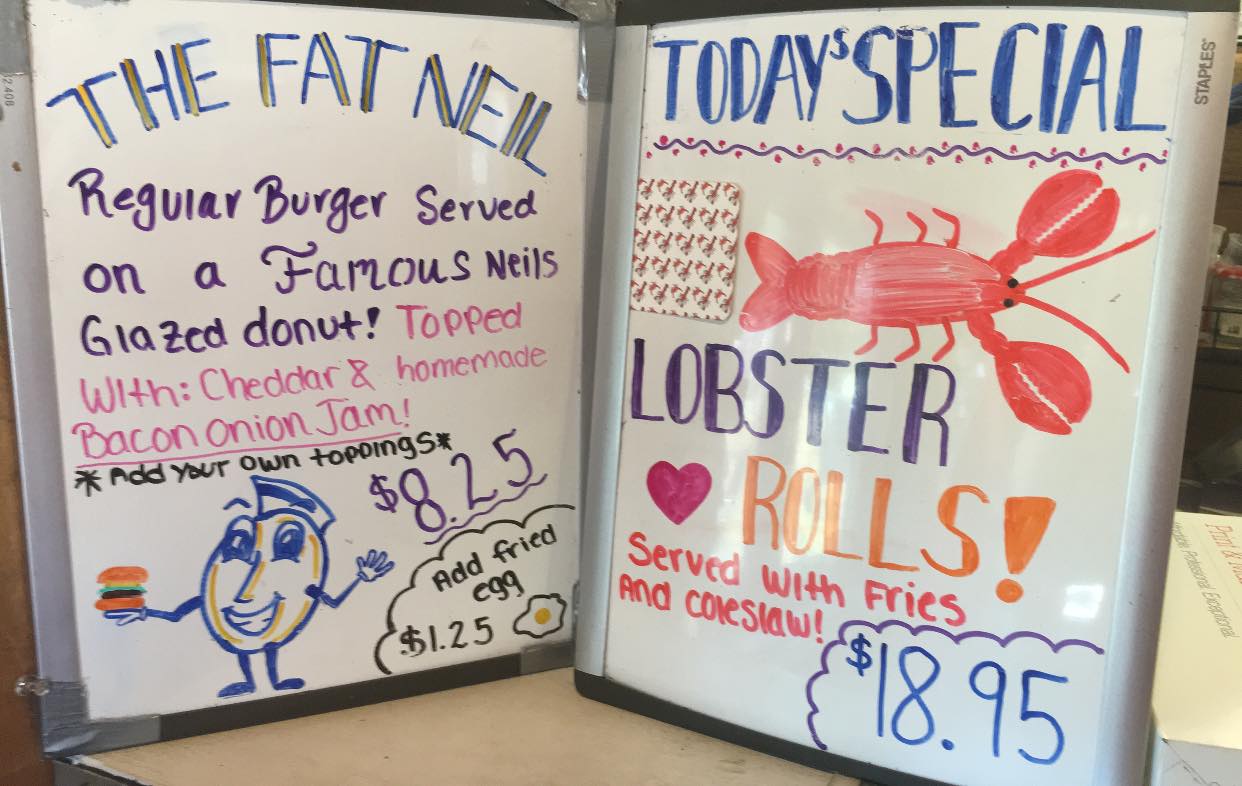 THE FAT NEIL
Regular Burger Served
on a Famous Neils
Glazed donut! Topped
With: Cheddar & homemade
Bacon Onion Jam!
*Add your own toppings*
$8.25
Add fried
egg
$1.25
TODAY'S SPECIAL
LOBSTER
ROLLS!
Served with Fries
And coleslaw!
$18.95
STAPLES
Professional Exceptional